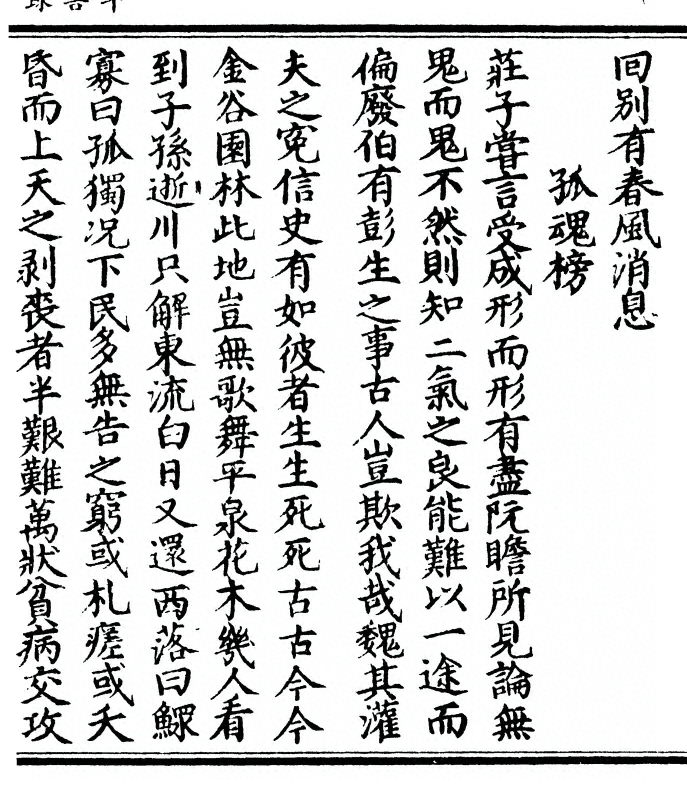 回別有春風消息
孤魂榜
莊子嘗言受成形而形有盡阮瞻所見論無
鬼而鬼不然則知二氣之良能難以一途而
偏廢伯有彭生之事古人豈欺我哉魏其灌
夫之冤信史有如彼者生生死死古古今今
金谷園林此地豈無歌舞平泉花木幾人看
到子孫逝川只解東流白日又還西落曰鰥
寡曰孤獨况下民多無告之窮或札瘥或夭
昏而上天之剥喪者半艱難萬狀貧病交攻